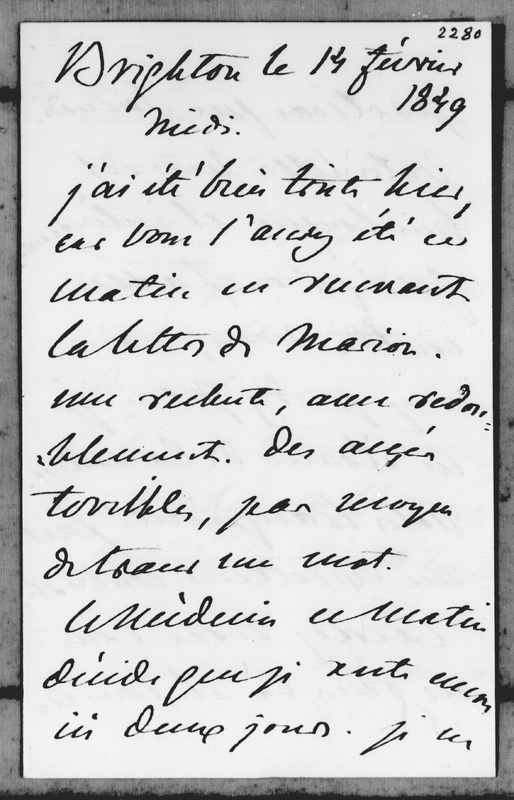 2280
Brighton le 14 février
1849
midi.
j'ai été bien triste hier,
car vous l'aurez été ce
matin en recevant
la lettre de Marion.
une rechute, avec redou=
=blement. des
terribles, pas moyen
de tracer un mot.
le Médecin ce matin
décide que je reste encore
ici deux jours. je ne